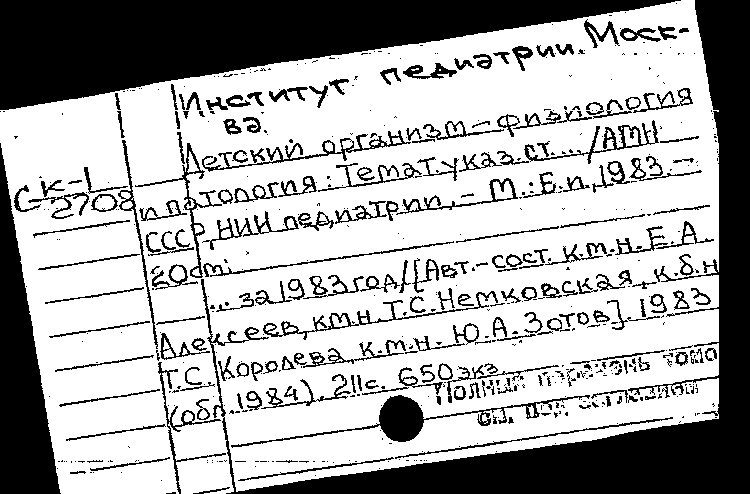 Институт педиатрии. Моск-
ва.
Детский организм – физиология
СК-1
2708
и патология: Темат. указ. ст. .../АМН
СССР, НИИ педиатрии. – М.: Б.и., 1983. –
20см.
... за 1983 год/[Авт.-сост. к.м.н. Е.А.
Алексеев, к.м.н. Т.С. Немковская, к.б.н
Т.С. Королева, к.м.н. Ю.А. Зотов]. 1983
(обл. 1984). 211с. 650 экз.
Полный перечень томо
см. под заглавием